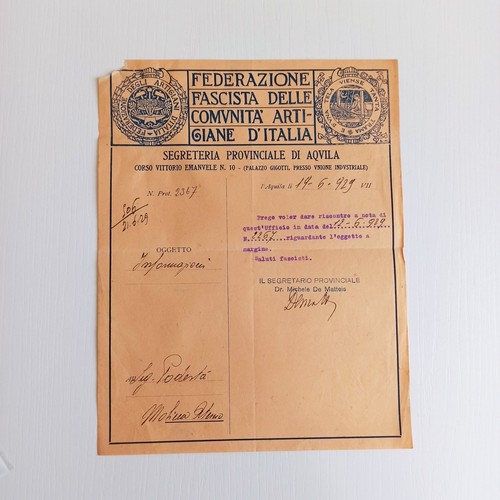 FEDERAZIONE
FASCISTA DELLE
COMVNITÀ ARTI-
GIANE D'ITALIA
SEGRETERIA PROVINCIALE DI AQVILA
CORSO VITTORIO EMANVELE N. 10 - (PALAZZO GIGOTTI, PRESSO VNIONE INDVSTRIALE)
N. Prot. 2367
l'Aquila li 19-6-929 VII
21.6.29
OGGETTO
Informazioni
Prego voler dare riscontro a nota di
quest'Ufficio in data del
N. 2267 riguardante l'oggetto a
margine.
Saluti fascisti.
IL SEGRETARIO PROVINCIALE
Dr. Michele De Matteis
Sig. Podestà
Molina Aterno